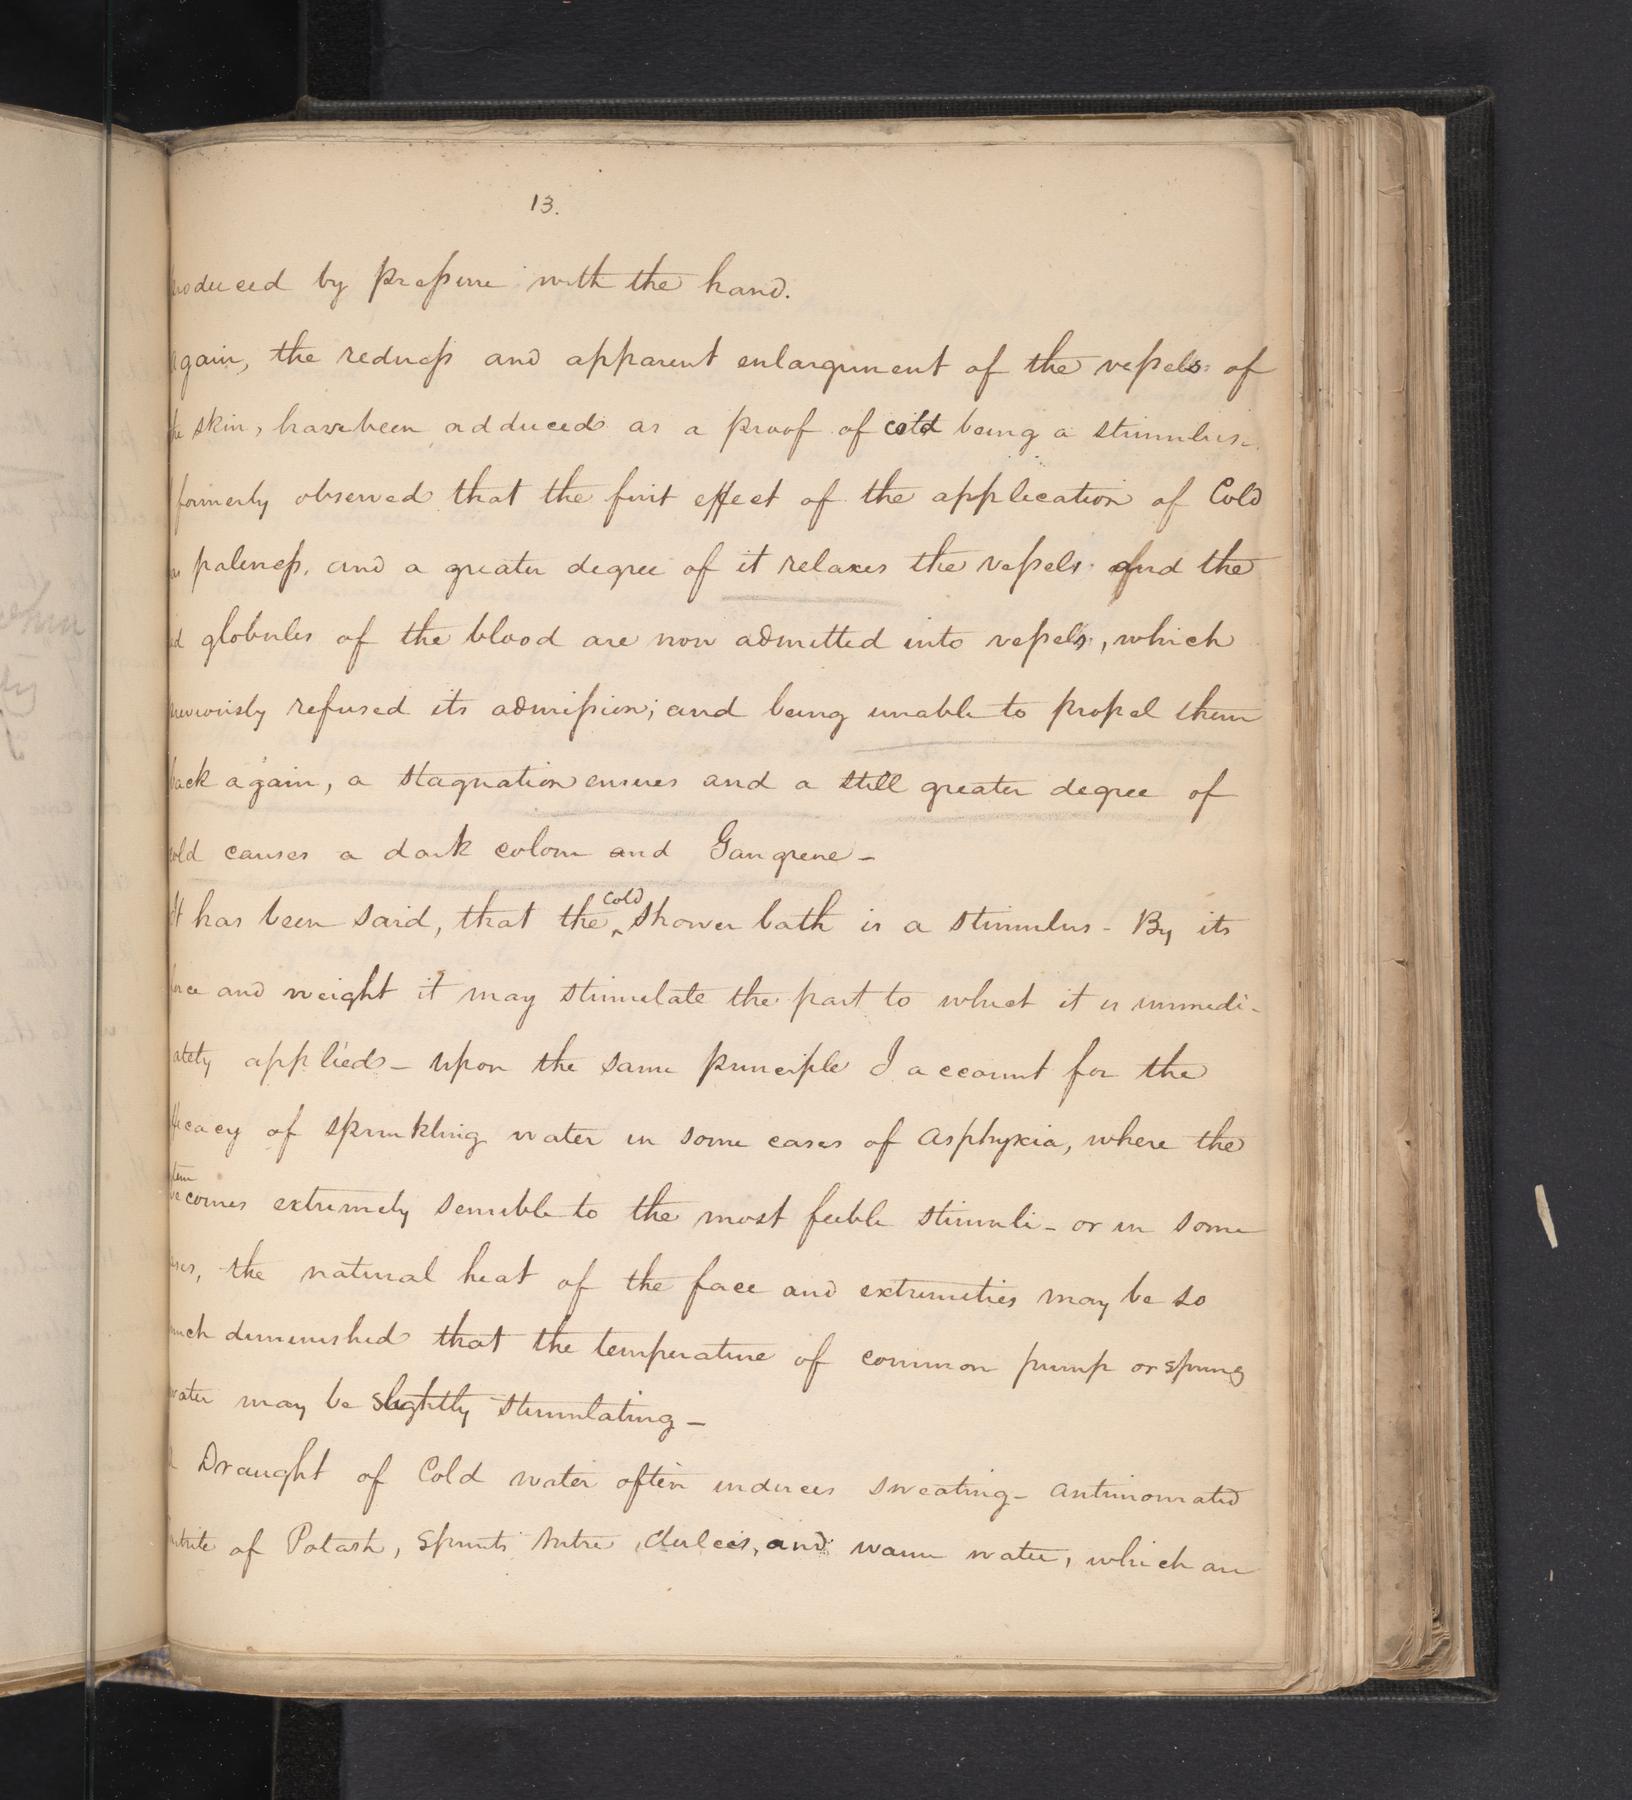 13.
roduced by pressure with the hand.
again, the redness and apparent enlargement of the vessels of
the skin, have been adduced as a proof of cold being a stimulus-
formerly observed that the first effect of the application of Cold
paleness, and a greater degree of it relaxes the vessels and the
ed globules of the blood are now admitted into vessels, which
previously refused its admission; and being unable to propel them
back again, a stagnation ensues and a still greater degree of
cold causes a dark colour and Gangrene-
It has been said, that the cold shower bath is a stimulus - By its
force and weight it may stimulate the part to which it is immedi-
ately applied - upon the same principle I account for the
fficacy of sprinkling water in some cases of asphyxia, where the
stem
becomes extremely sensible to the most feeble stimuli - or in some
ases, the natural heat of the face and extremities may be so
much diminished that the temperature of common pump or spring
water may be slightly stimulating -
A Draught of Cold water often induces sweating - antimoniated
Tartrite of Potash, Spirits Nitri dulcis, and warm water, which are